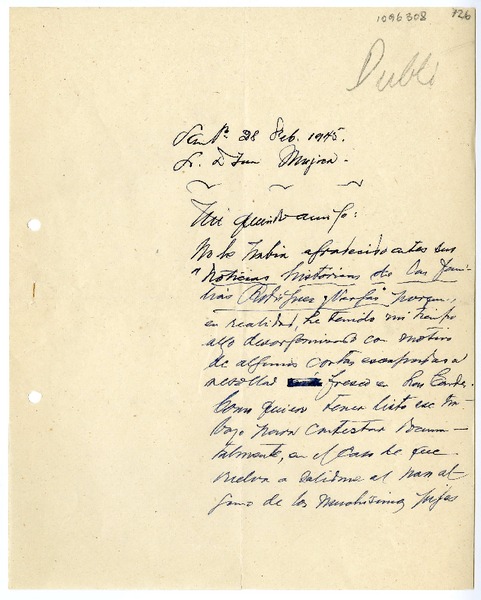 1096308 726
Publi
28 Feb. 1945.
Sr. D Juan Mujica.
Mi querido amigo:
No le había agradecido antes sus
"Noticias históricas de las fami-
lias Rodríguez y Vargas" porque,
en realidad, he tenido mi tiempo
algo desorganizado con motivo
de algunas cortas escapadas a
fresco en Las
Como quiero tener listo ese tra-
bajo para contestar docum-
talmente, en el caso de que
vuelva a salirme al paso al-
guno de los muchísimos